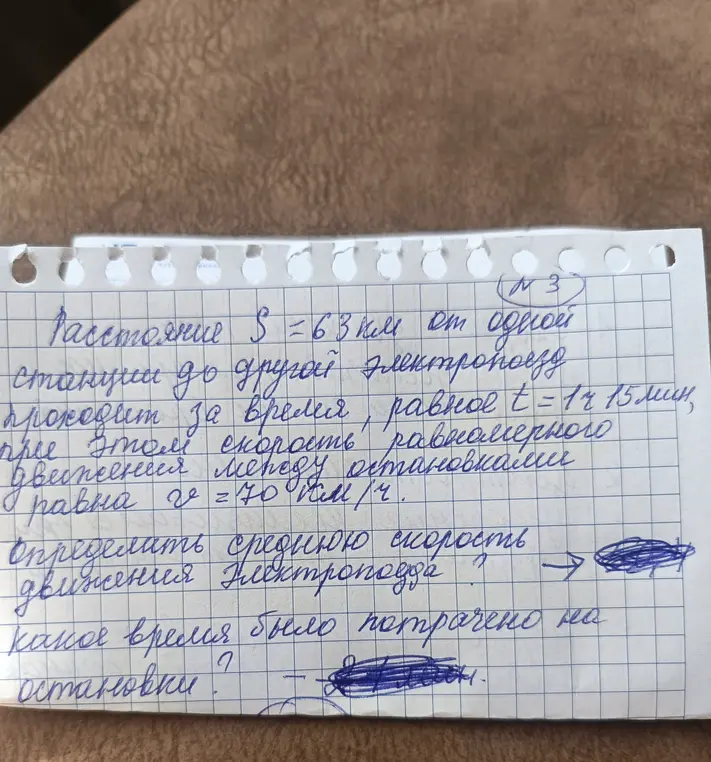 № 3
Расстояние S = 63 км от одной
станции до другой электропоезд
проходит за время, равное t = 1ч 15мин,
при этом скорость равномерного
движения между остановками
равна v = 70 км/ч.
Определить среднюю скорость
движения электропоезда? →
какое время было потрачено на
остановки? –